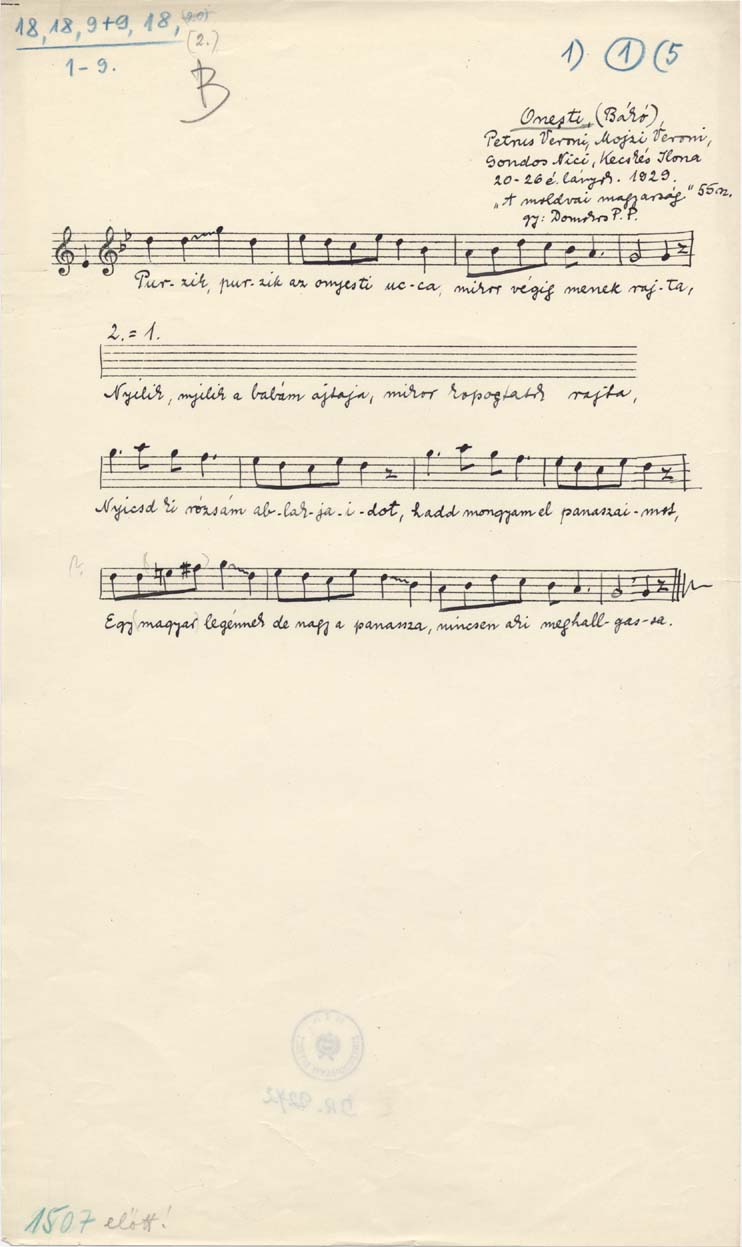 18, 18, 9+9, 18, (20)
(2.)
1-9.
B
1) 1 (5
Onesti, (Bákó),
Petrus Veroni, Mojzi Veroni,
Gondos Nici, Kecskés Ilona
20-26 é. lányok. 1929.
"A moldvai magyarság" 55 n.
gy: Domokos P. P.
Pur-zik, pur-zik az onyesti uc-ca, mikor végig menek raj-ta,
2. = 1.
Nyilik, nyilik a babám ajtaja, mikor kopogtatok rajta,
Nyicsd ki rózsám ab-lak-ja-i-dot, hadd mongyam el panaszai-mot,
Egy (magyar) legénnek de nagy a panassza, nincsen aki meghall-gas-sa.
1507 előtt!